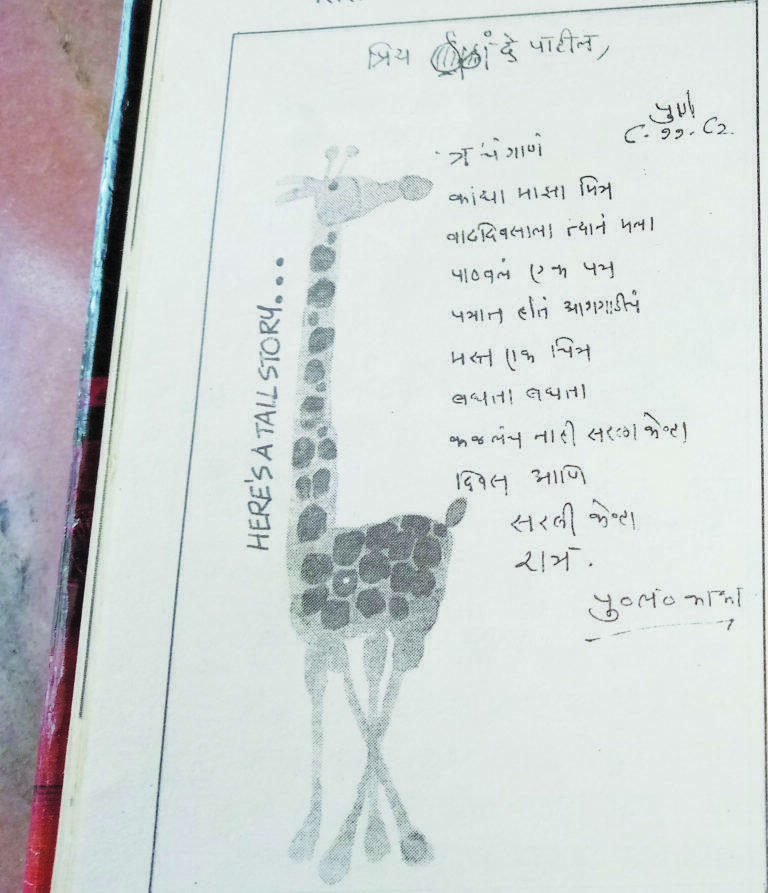 प्रिय दे पाटील,
पुणे
८. ११. ८२.
त्र चं गाणं
कांद्या माझा मित्र
वाढदिवसाला त्यानं मला
पाठवलं एक पत्र
पत्रात होतं आगगाडीचं
मस्त एक चित्र
बघता बघता
कळलंच नाही सरला केव्हा
दिवस आणि
सरली केव्हा
रात्र.
पु० ल० काका
HERE'S A TALL STORY...